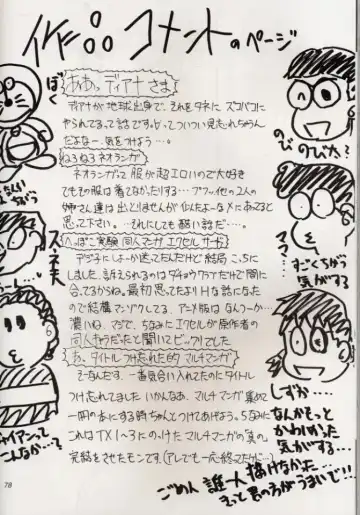 作品コメントのページ
ああっディアナさま
ディアナが地球出身で、それをタネにズコバコに
やられてるって話です。よってついつい見忘れちゃうん
だよなー。気をつけよう…。
ねろねろネオランガ
ネオランガって服が超エロいので大好き
でもその服は着てなかったりする…アフゥ。他の2人の
姉さん達は出とりませんが似たよーなメにあってると
思って下さい。…それにしても酷い話だ…。
へっぽこ実験同人マンガエクセルサーガ
アンにしよーか迷ってたんだけど結局こっちに
しました。訴えられるのは
合ってるかね。最初思ってたよりHな話になった
ので結構マンゾクしてる。アニメ版はなんつーか…
濃いね、マジで。ちなみにエクセルが原作者の
同人キャラだったと聞いてビックリでした
あ、タイトルつけ忘れた的マルチマンガ
そーなんす。一番気合い入れてたのにタイトル
つけ忘れてました。いかんなあ。マルチマンガ集めて
一冊の本にする時ちゃんとつけてあげよう。ちなみに
これはTX1〜3にのっけたマルチマンガの"真の"
完結をさせたモンです(アレでも一応終ってたけど…)
ぼく
のびのびた?
ママ…
すごくちがう
気がする
スネ夫
しずか…
なんかもっと
かわいかった
気がする…
ジャイアンって
こんなか…て
ごめん誰一人描けなかった…
きっと君の方がうまいで!!
78